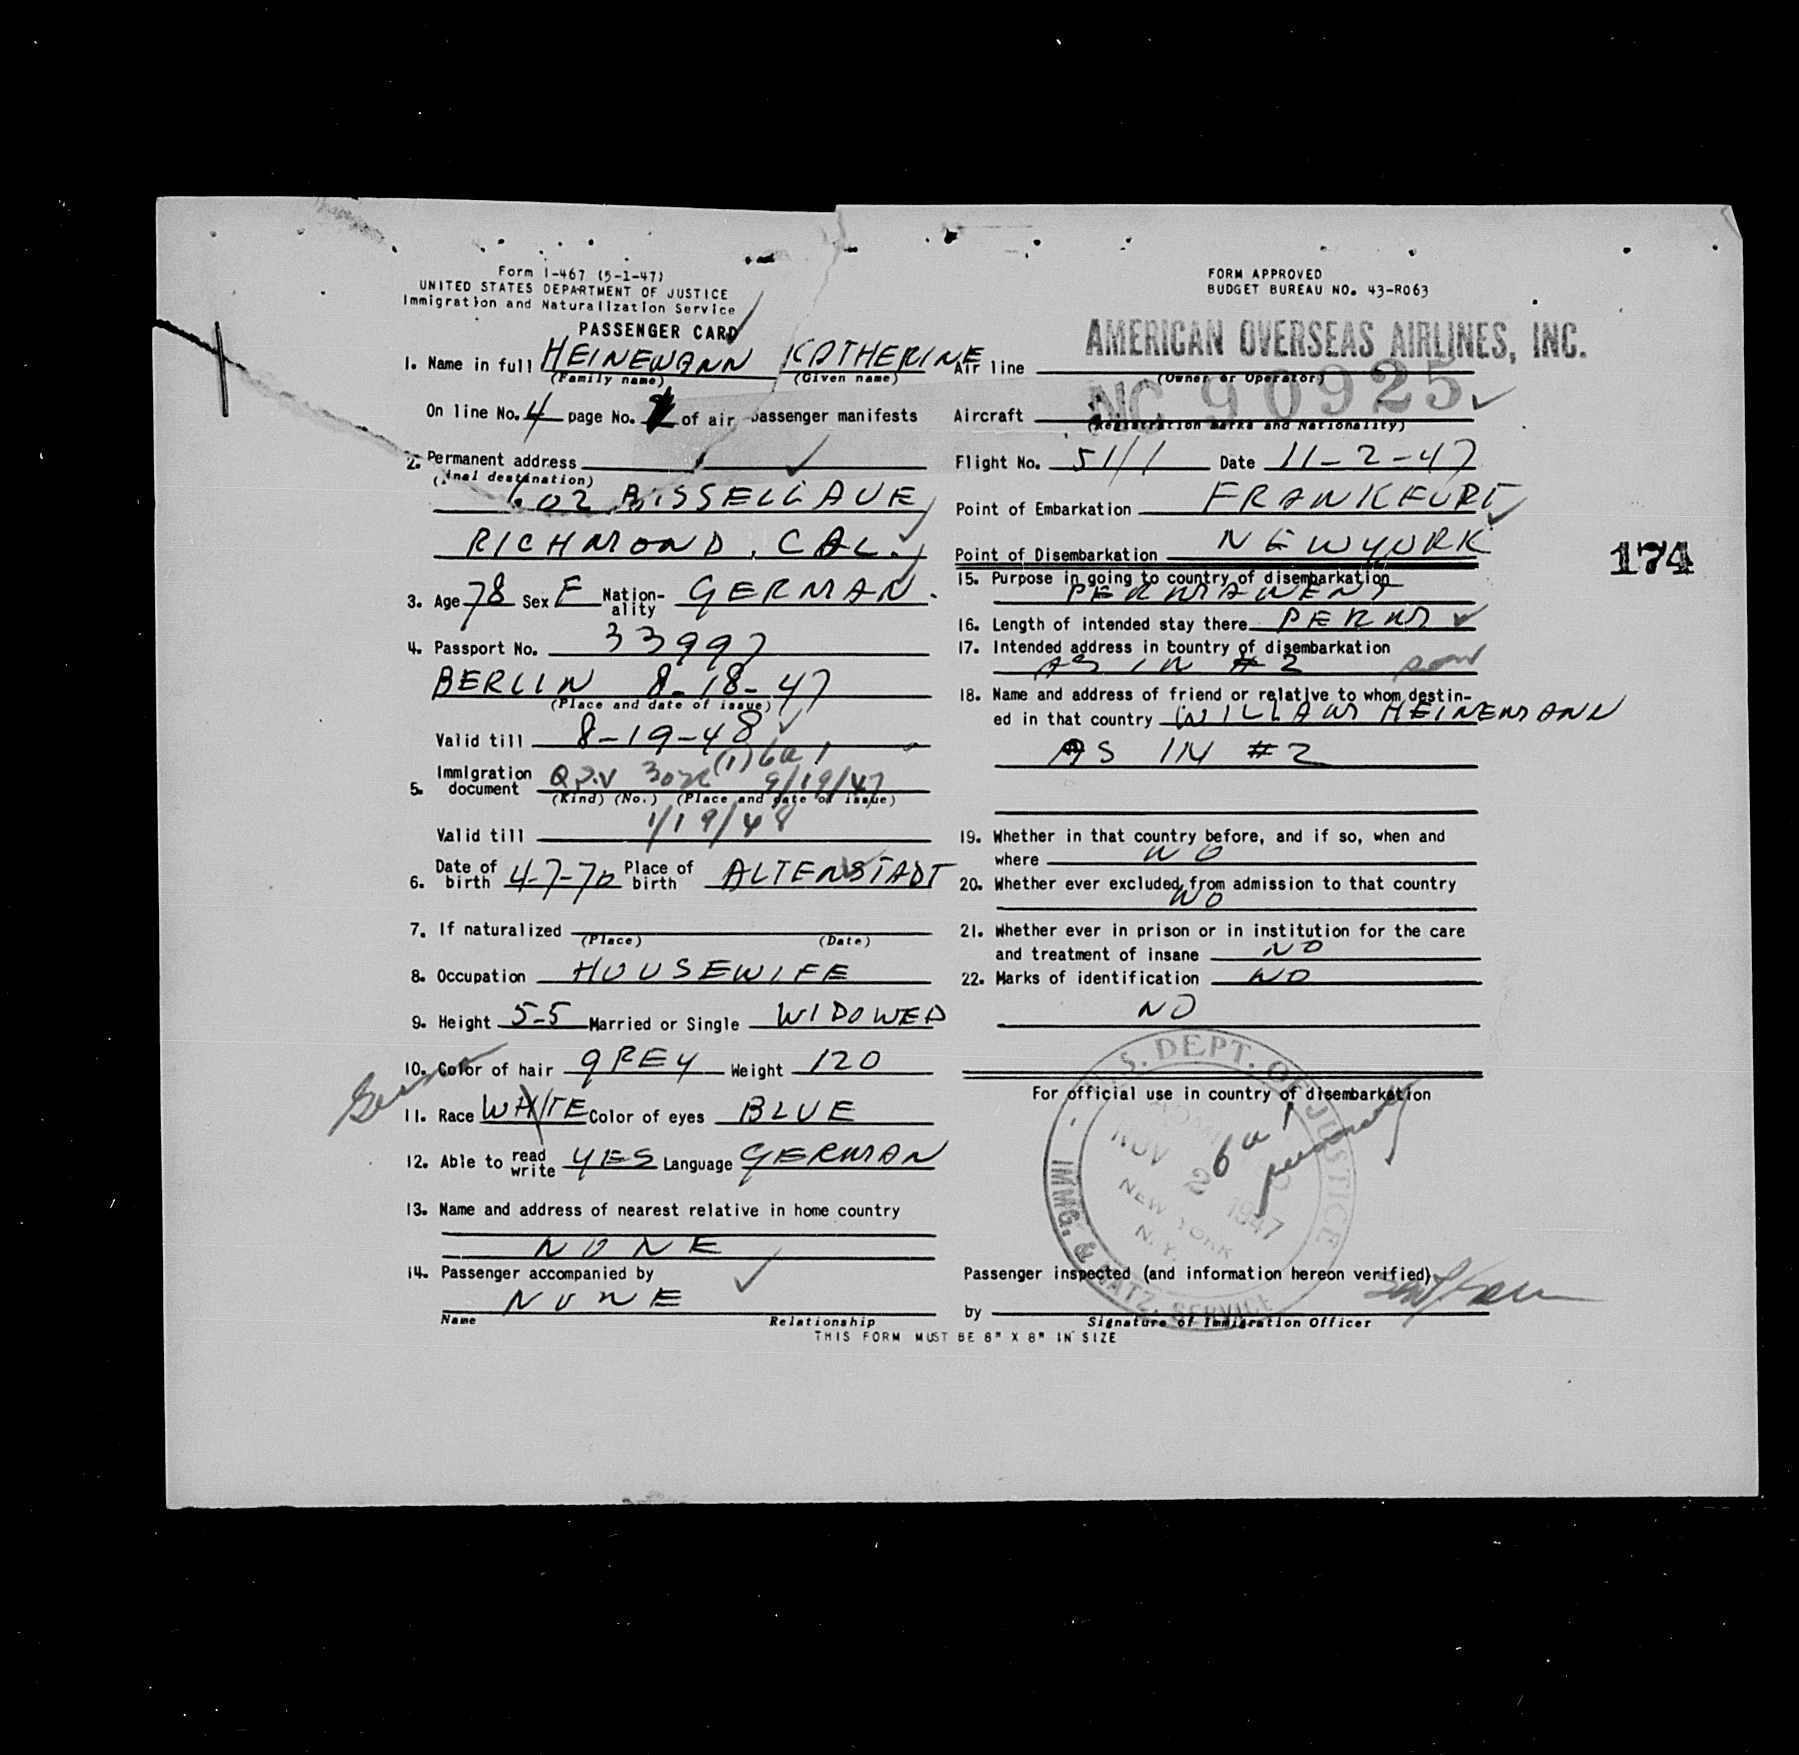 Form I-467 (5-1-47)
UNITED STATES DEPARTMENT OF JUSTICE
Immigration and Naturalization Service
PASSENGER CARD
1. Name in full HEINEMANN KATHERINE
(Family name) (Given name)
On line No. 4 page No. of air passenger manifests
2. Permanent address
(final destination)
602 BISSELL AVE
RICHMOND, CAL.
3. Age 78 Sex F Nation-ality GERMAN.
4. Passport No. 33997
BERLIN 8-18-47
(Place and date of issue)
Valid till 8-19-48
5. Immigration document Q.I.V (1) 6a1 9/19/47
(Kind) (No.) (Place and date of issue)
Valid till 1/19/48
6. Date of birth 4-7-70 Place of birth ALTENSTADT
7. If naturalized
(Place) (Date)
8. Occupation HOUSEWIFE
9. Height 5-5 Married or Single WIDOWED
10. Color of hair GREY Weight 120
11. Race WHITE Color of eyes BLUE
12. Able to read write YES Language GERMAN
13. Name and address of nearest relative in home country
NONE
14. Passenger accompanied by
NONE
Name Relationship
FORM APPROVED
BUDGET BUREAU NO. 43-R063
AMERICAN OVERSEAS AIRLINES, INC.
Air line
(Owner or Operator)
NC 90925
Aircraft
(Registration marks and Nationality)
Flight No. 51/1 Date 11-2-47
Point of Embarkation FRANKFURT
Point of Disembarkation NEW YORK
174
15. Purpose in going to country of disembarkation
PERMANENT
16. Length of intended stay there PERM
17. Intended address in country of disembarkation
AS IN #2
18. Name and address of friend or relative to whom destin-
ed in that country WILLAM HEINEMANN
AS IN #2
19. Whether in that country before, and if so, when and
where NO
20. Whether ever excluded from admission to that country
NO
21. Whether ever in prison or in institution for the care
and treatment of insane NO
22. Marks of identification NO
NO
For official use in country of disembarkation
U.S. DEPT. OF JUSTICE
IMMG. & NATZ. SERVICE
ADMITTED
NOV 2 1947
NEW YORK
N.Y.
6a1
Passenger inspected (and information hereon verified)
by
Signature of Immigration Officer
THIS FORM MUST BE 8" X 8" IN SIZE